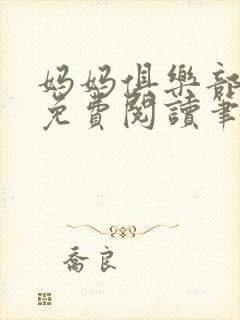 妈妈俱樂部
免費閱讀筆
喬良